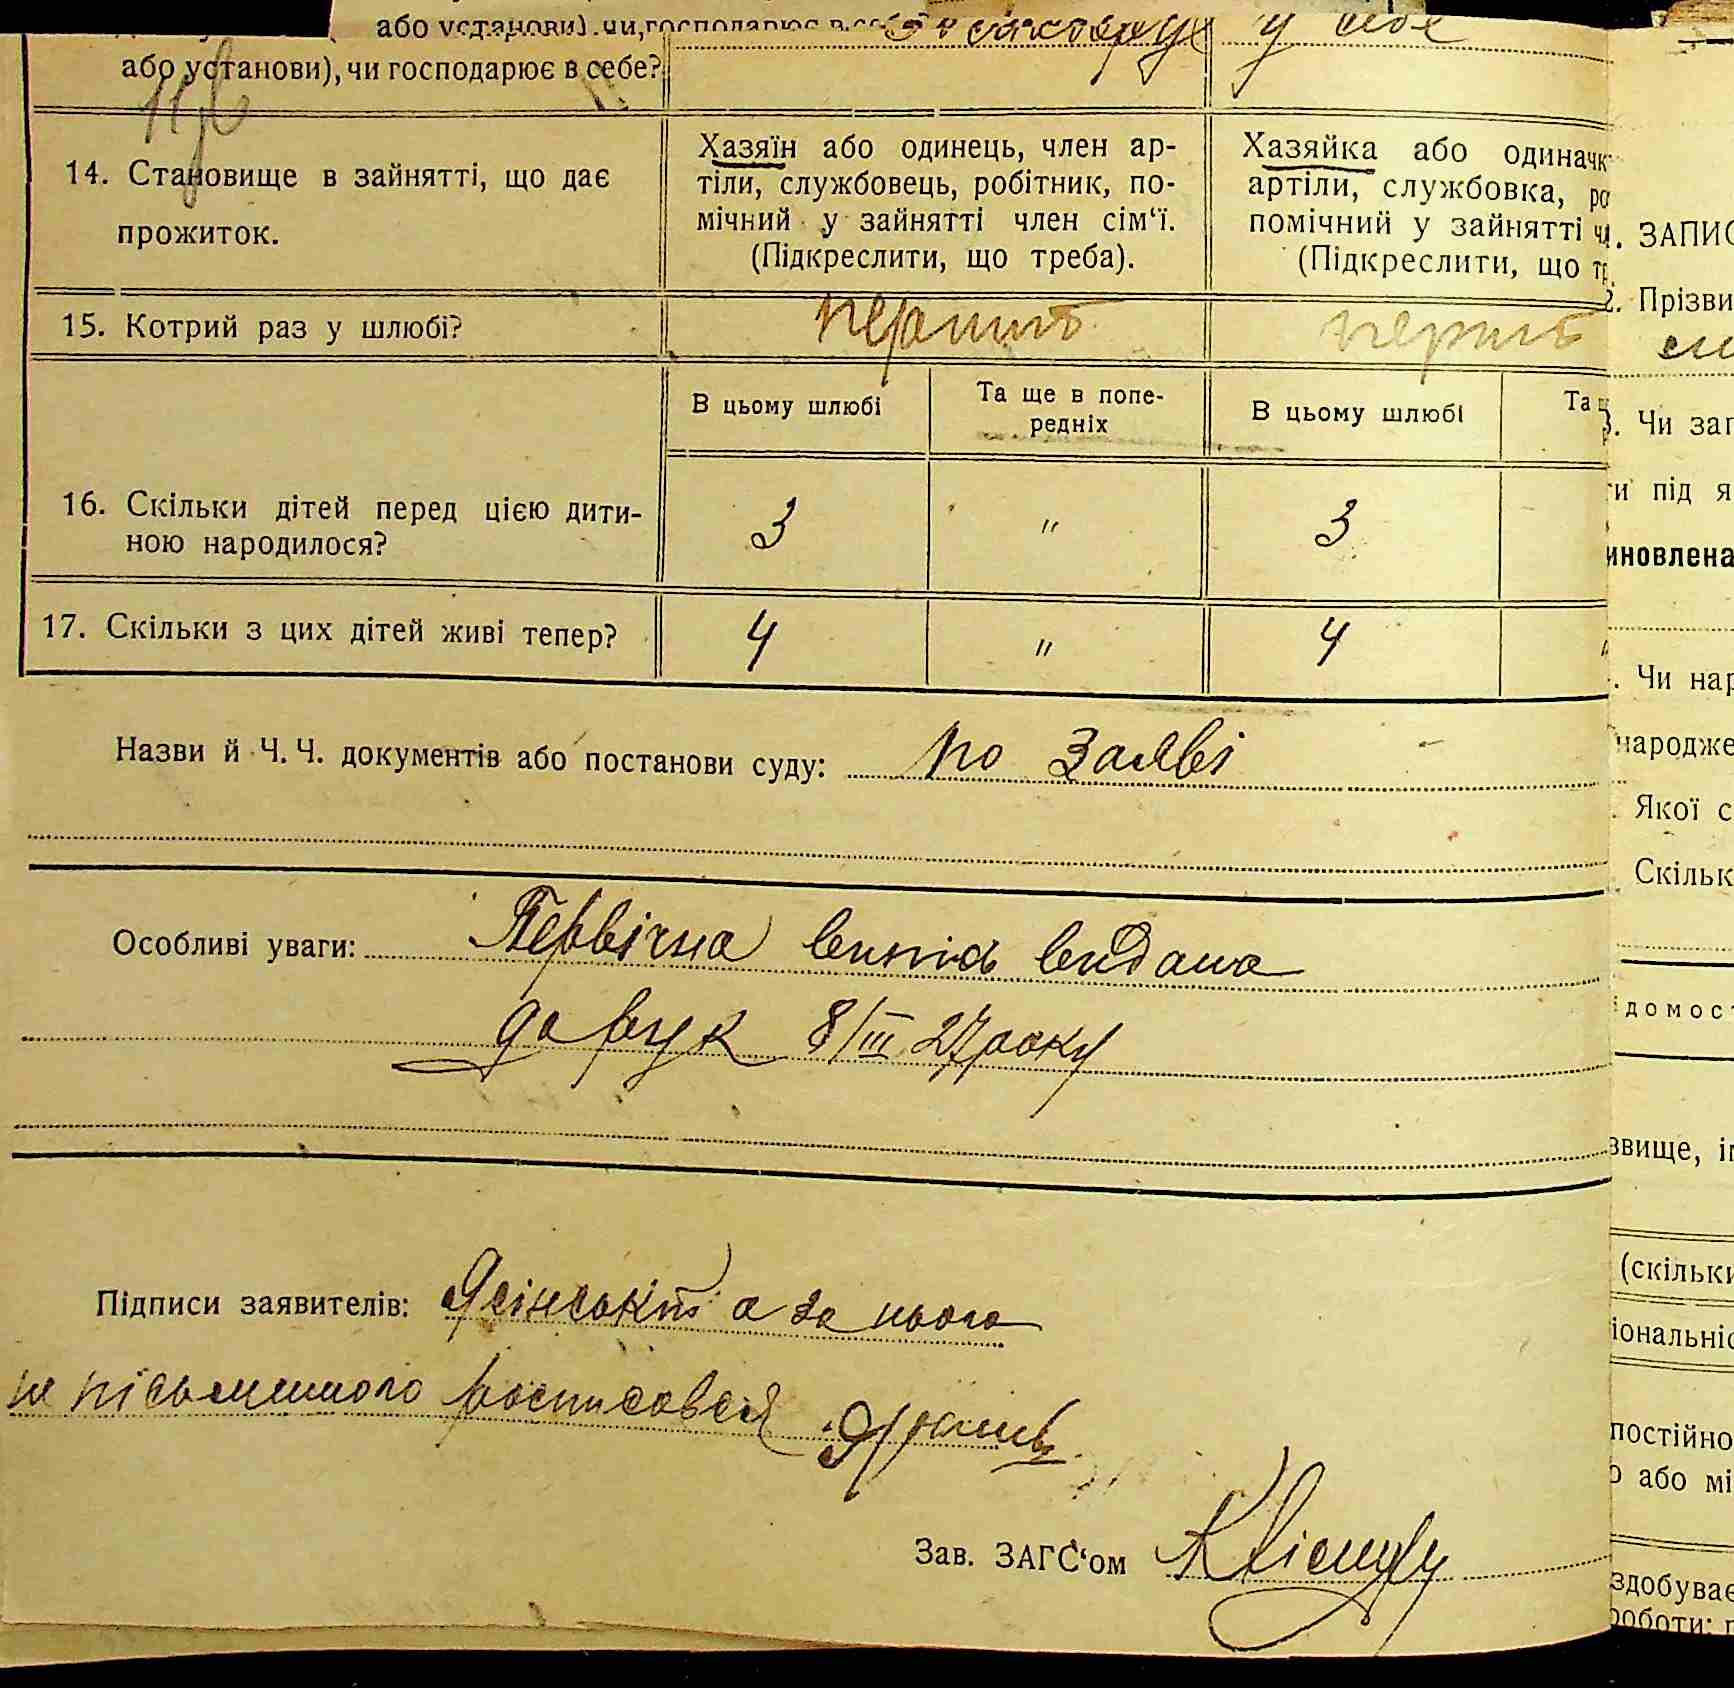 або установи), чи господарює в себе?
або установи), чи господарює в себе? господару у себе
14. Становище в зайнятті, що дає прожиток.
Хазяїн або одинець, член ар-
тіли, службовець, робітник, по-
мічний у зайнятті член сім‘ї.
(Підкреслити, що треба).
Хазяйка або одиначк
артіли, службовка, ро
помічний у зайнятті чл
(Підкреслити, що тр
15. Котрий раз у шлюбі? перший перший
В цьому шлюбі
Та ще в попе-
редніх
В цьому шлюбі
Та щ
16. Скільки дітей перед цією дити-
ною народилося? 3 " 3
17. Скільки з цих дітей живі тепер? 4 " 4
Назви й Ч. Ч. документів або постанови суду: по заяві
Особливі уваги: Первічна випись видана
до рук 8/III 27 року
Підписи заявителів: Ясінський а за нього
не пісьменного росписовся
Зав. ЗАГС‘ом
1. ЗАПИС
2. Прізви
3. Чи заг
ти під я
иновлена
Чи нар
народже
Якої с
Скільк
ідомост
звище, ім
(скільки
іональніс
постійно
о або мі
здобуває
роботи: п